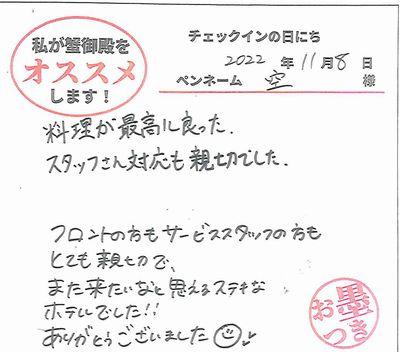 私が蟹御殿を
オススメ
します！
チェックインの日にち
2022 年 11 月 8 日
ペンネーム 空 様
料理が最高に良った.
スタッフさん対応も親切でした.
フロントの方もサービススタッフの方も
とても親切で、
また来たいなと思えるステキな
ホテルでした!!
ありがとうございました
お墨つき